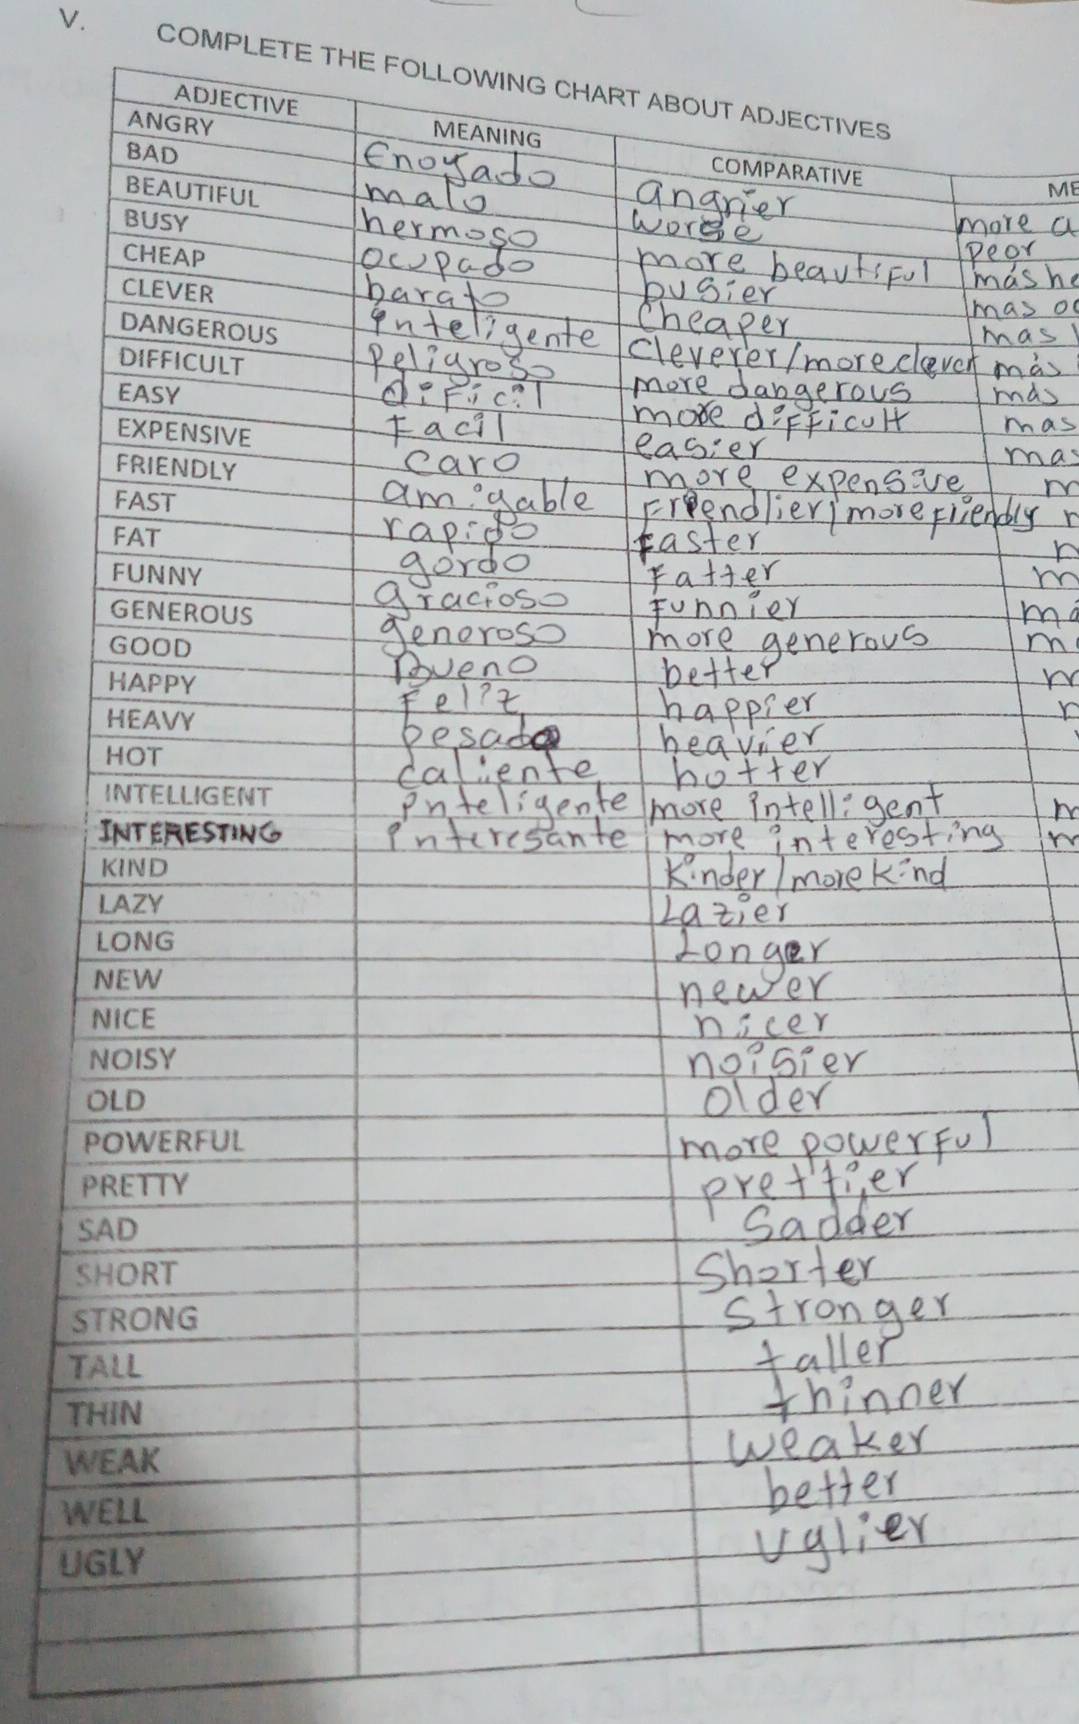 V. COMPLETE THE FOLLOWING CHART ABOUT ADJECTIVES
ADJECTIVE MEANING COMPARATIVE ME
ANGRY Enojado angrier more a
BAD malo worse peor
BEAUTIFUL hermoso more beautiful más he
BUSY ocupado busier mas oc
CHEAP barato cheaper mas
CLEVER inteligente cleverer/more clever más
DANGEROUS peligroso more dangerous más
DIFFICULT dificil more difficult mas
EASY Facil easier mas
EXPENSIVE caro more expensive m
FRIENDLY amigable Friendlier/more friendly
FAST rapido Faster
FAT gordo Fatter m
FUNNY gracioso Funnier má
GENEROUS generoso more generous m
GOOD Bueno better
HAPPY Feliz happier
HEAVY pesado heavier
HOT caliente hotter
INTELLIGENT inteligente more intelligent m
INTERESTING interesante more interesting m
KIND Kinder/more kind
LAZY Lazier
LONG Longer
NEW newer
NICE nicer
NOISY noisier
OLD Older
POWERFUL more powerful
PRETTY prettier
SAD Sadder
SHORT Shorter
STRONG Stronger
TALL taller
THIN thinner
WEAK weaker
WELL better
UGLY Uglier